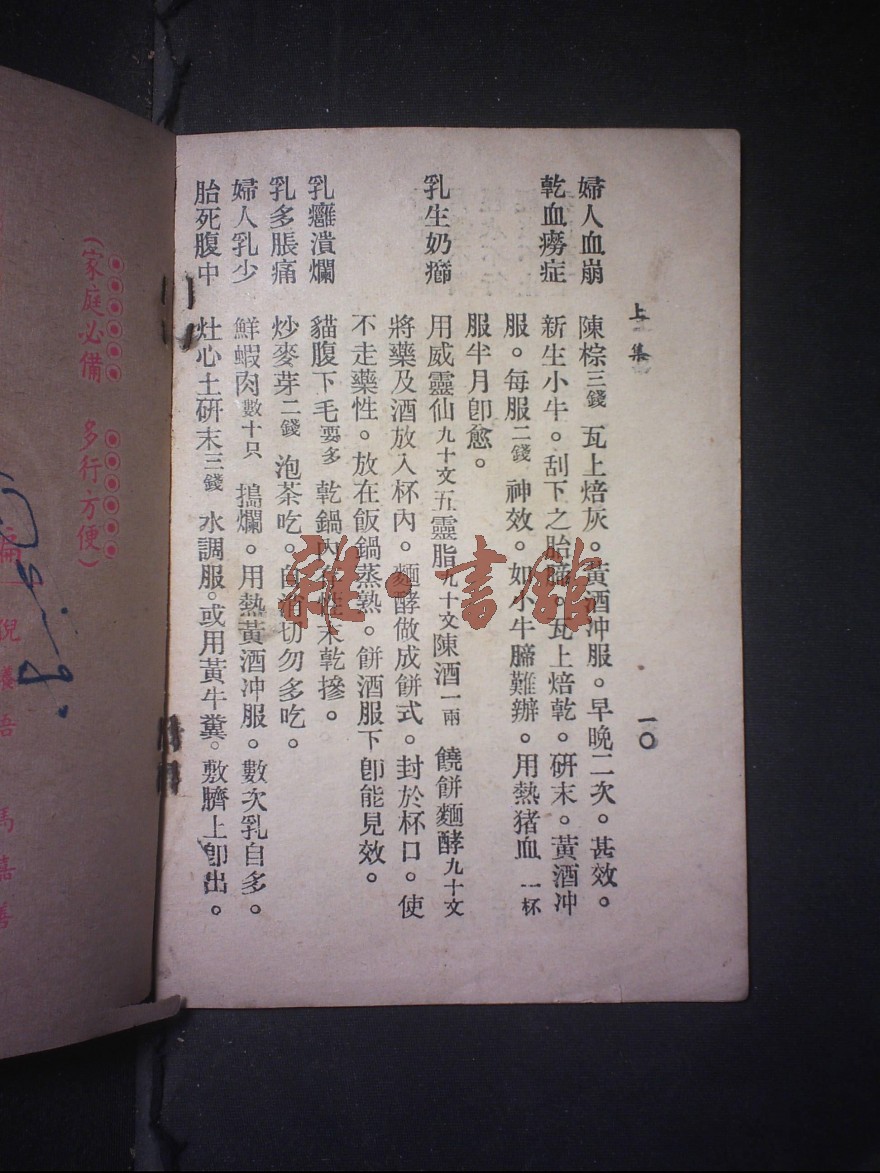 上集
一〇
婦人血崩 陳棕三錢 瓦上焙灰。黃酒冲服。早晚二次。甚效。
乾血癆症 新生小牛。刮下之胎蹄。瓦上焙乾。研末。黃酒冲
服。每服二錢 神效。如小牛蹄難辦。用熱猪血一杯
服半月卽愈。
乳生奶癤 用威靈仙九十文五靈脂九十文陳酒一兩 饒餅麵酵九十文
將藥及酒放入杯內。麵酵做成餅式。封於杯口。使
不走藥性。放在飯鍋蒸熟。餅酒服下卽能見效。
乳癰潰爛 貓腹下毛要多 乾鍋內 性末乾摻。
乳多脹痛 炒麥芽二錢 泡茶吃。自消切勿多吃。
婦人乳少 鮮蝦肉數十只 搗爛。用熱黃酒冲服。數次乳自多。
胎死腹中 灶心土研末三錢 水調服。或用黃牛糞。敷臍上卽出。
(家庭必備 多行方便)
倪
馬
善
雜·書館